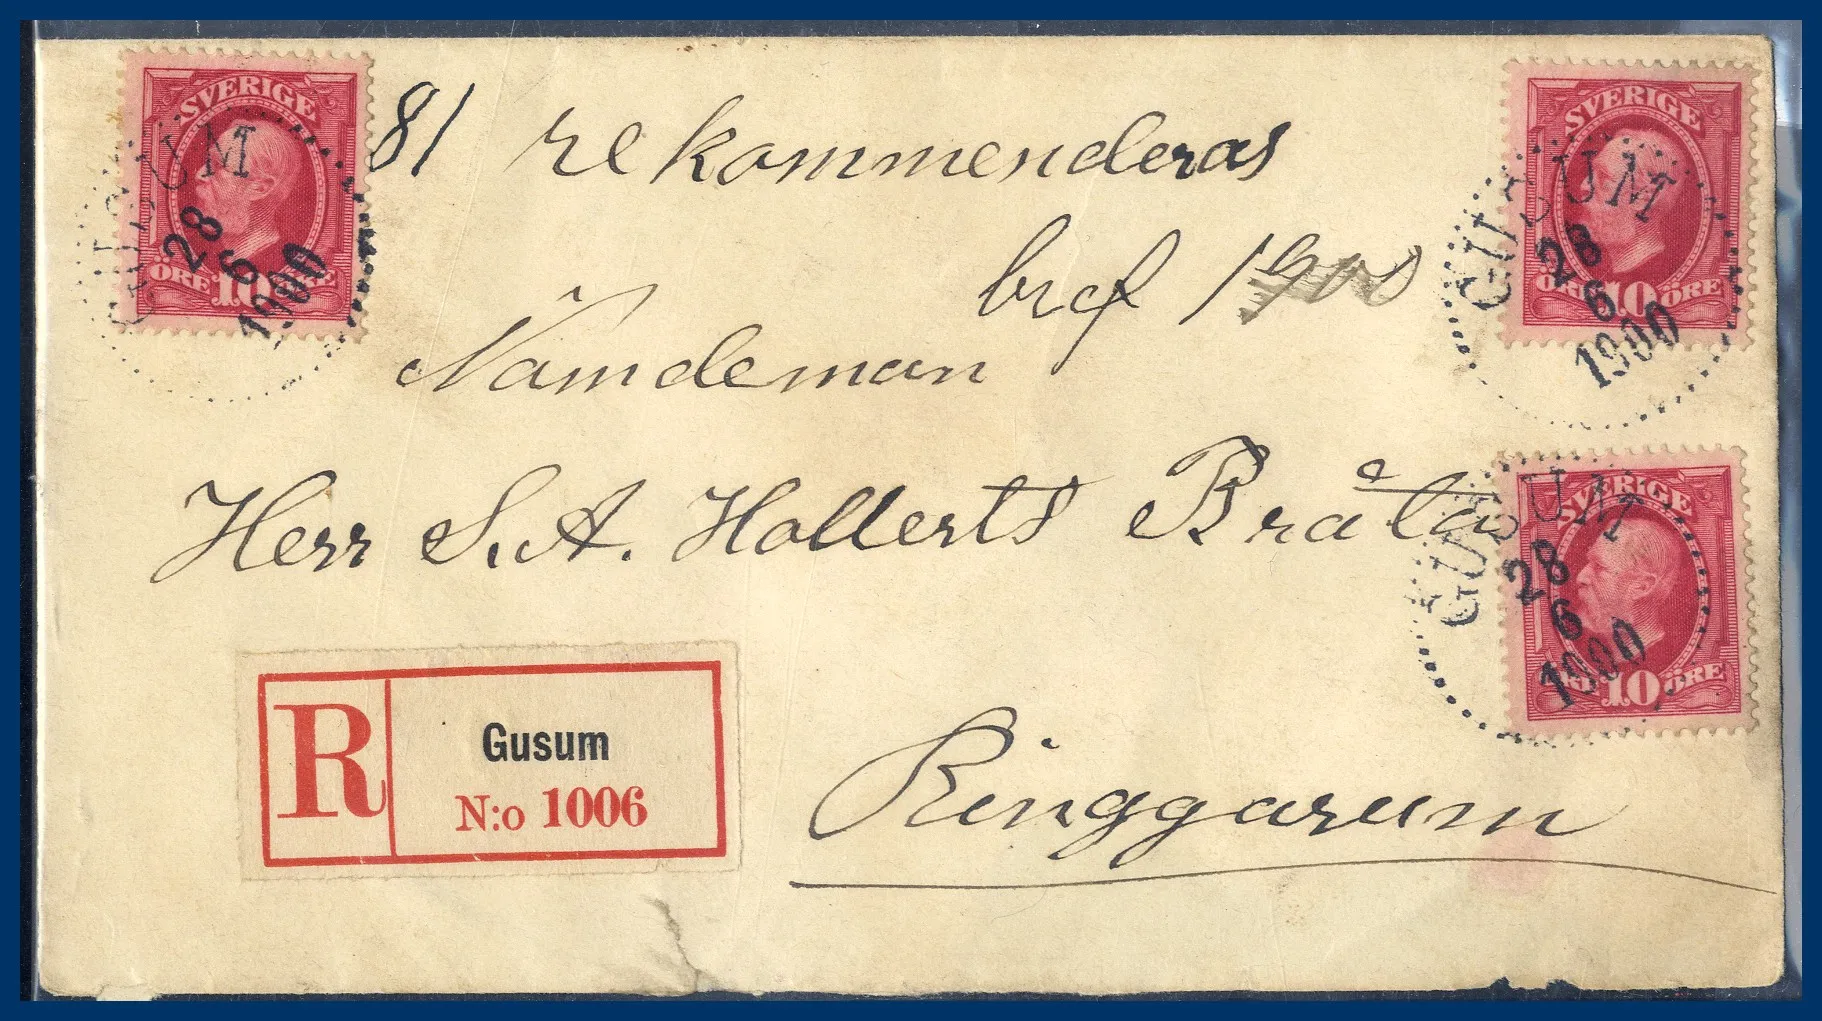 SVERIGE
ÖRE 10 ÖRE
GUSUM
28
6
1900
81 rekommenderas
bref 1900
Nämdeman
Herr S. A. Hollerts Bråta
Ringgarum
SVERIGE
ÖRE 10 ÖRE
GUSUM
28
6
1900
SVERIGE
ÖRE 10 ÖRE
GUSUM
28
6
1900
R
Gusum
N:o 1006